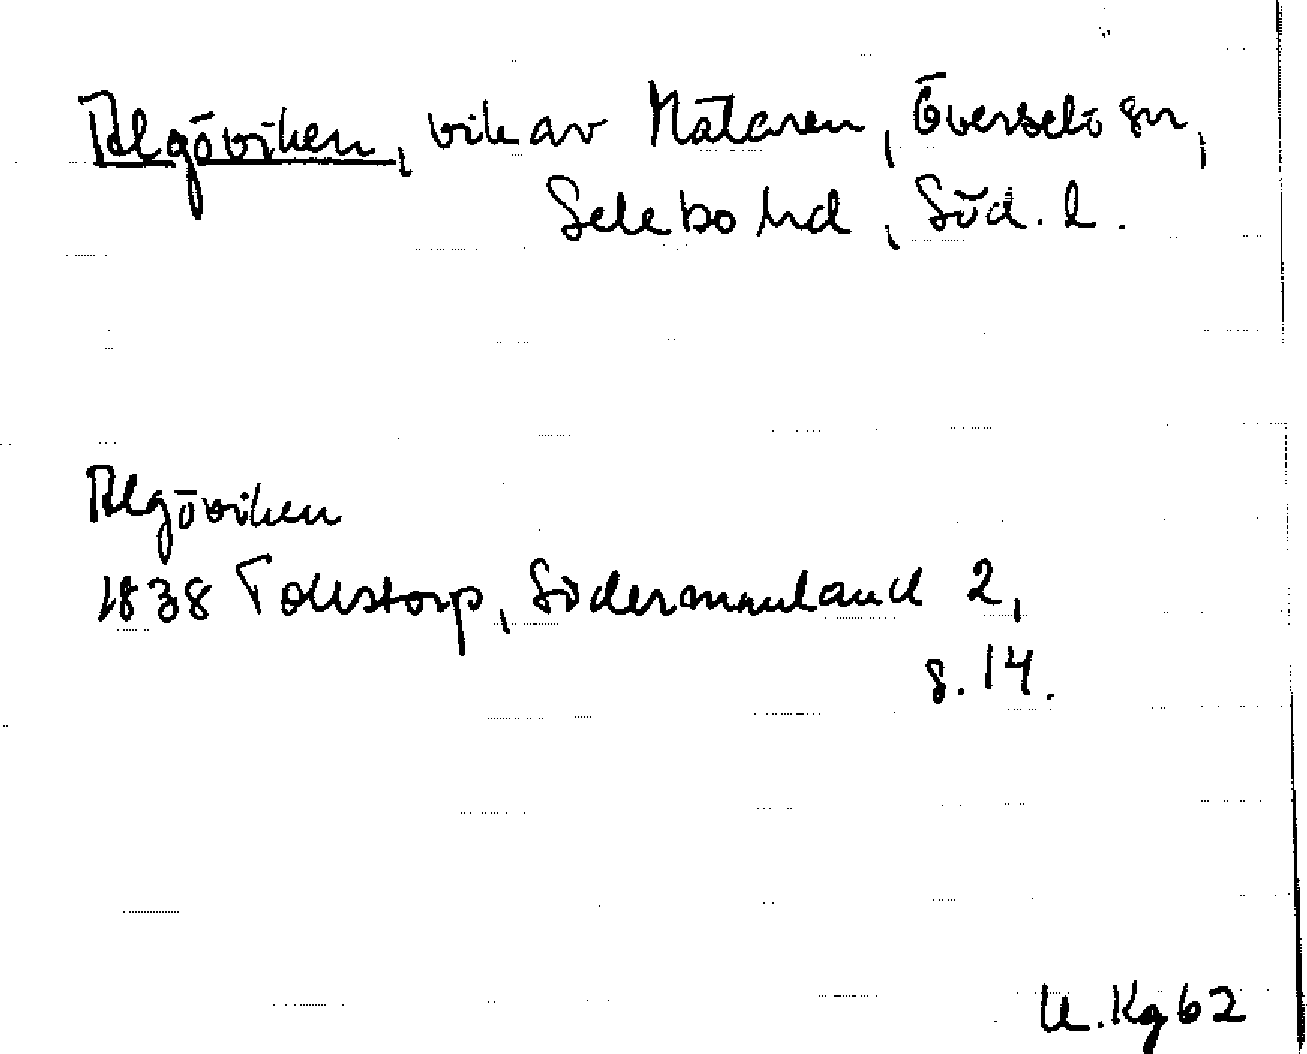 Algöviken, vik av Mälaren, Överselö sn,
Selebo hd, Söd. l.
Algöviken
1838 Tollstorp, Södermanland 2,
s. 14.
U. Kg 62